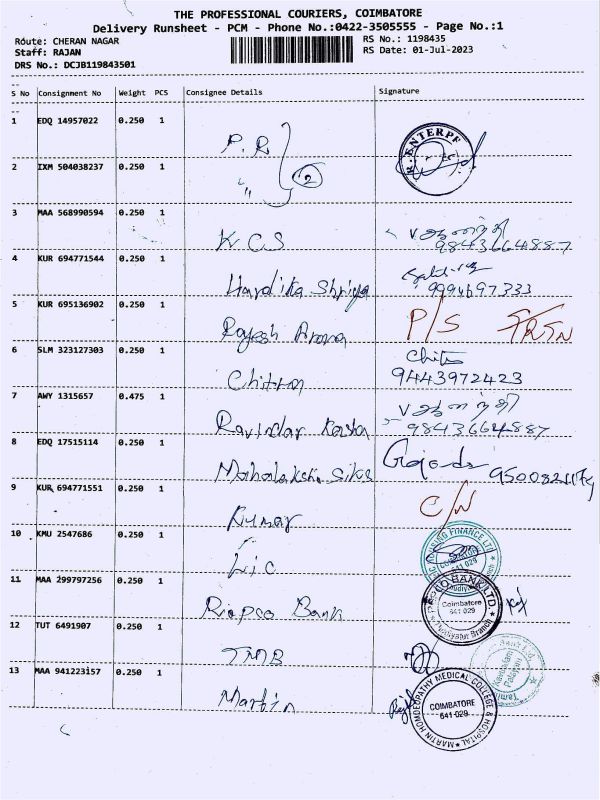 THE PROFESSIONAL COURIERS, COIMBATORE
Delivery Runsheet - PCM - Phone No.:0422-3505555 - Page No.:1
Route: CHERAN NAGAR RS No.: 1198435
Staff: RAJAN RS Date: 01-Jul-2023
DRS No.: DCJB119843501
S No Consignment No Weight PCS Consignee Details Signature
1 EDQ 14957022 0.250 1
P.R ENTERP
2 IXM 504038237 0.250 1
" 2
3 MAA 568990594 0.250 1
KCS 9843664887
4 KUR 694771544 0.250 1
Hardika Shriya 9994697333
5 KUR 695136902 0.250 1
Rajesh Arora P/S
6 SLM 323127303 0.250 1
Chitra 9443972423
7 AWY 1315657 0.475 1
Ravindar 9843664887
8 EDQ 17515114 0.250 1
Silks
9 KUR 694771551 0.250 1
Kumar C/N
10 KMU 2547686 0.250 1
LIC HOUSING FINANCE LTD COIMBATORE 641 029
11 MAA 299797256 0.250 1
Repco Bank REPCO BANK LTD Coimbatore 641 029 Branch
12 TUT 6491907 0.250 1
TMB
13 MAA 941223157 0.250 1
Martin MARTIN HOMOEOPATHY MEDICAL COLLEGE & HOSPITAL COIMBATORE 641 029